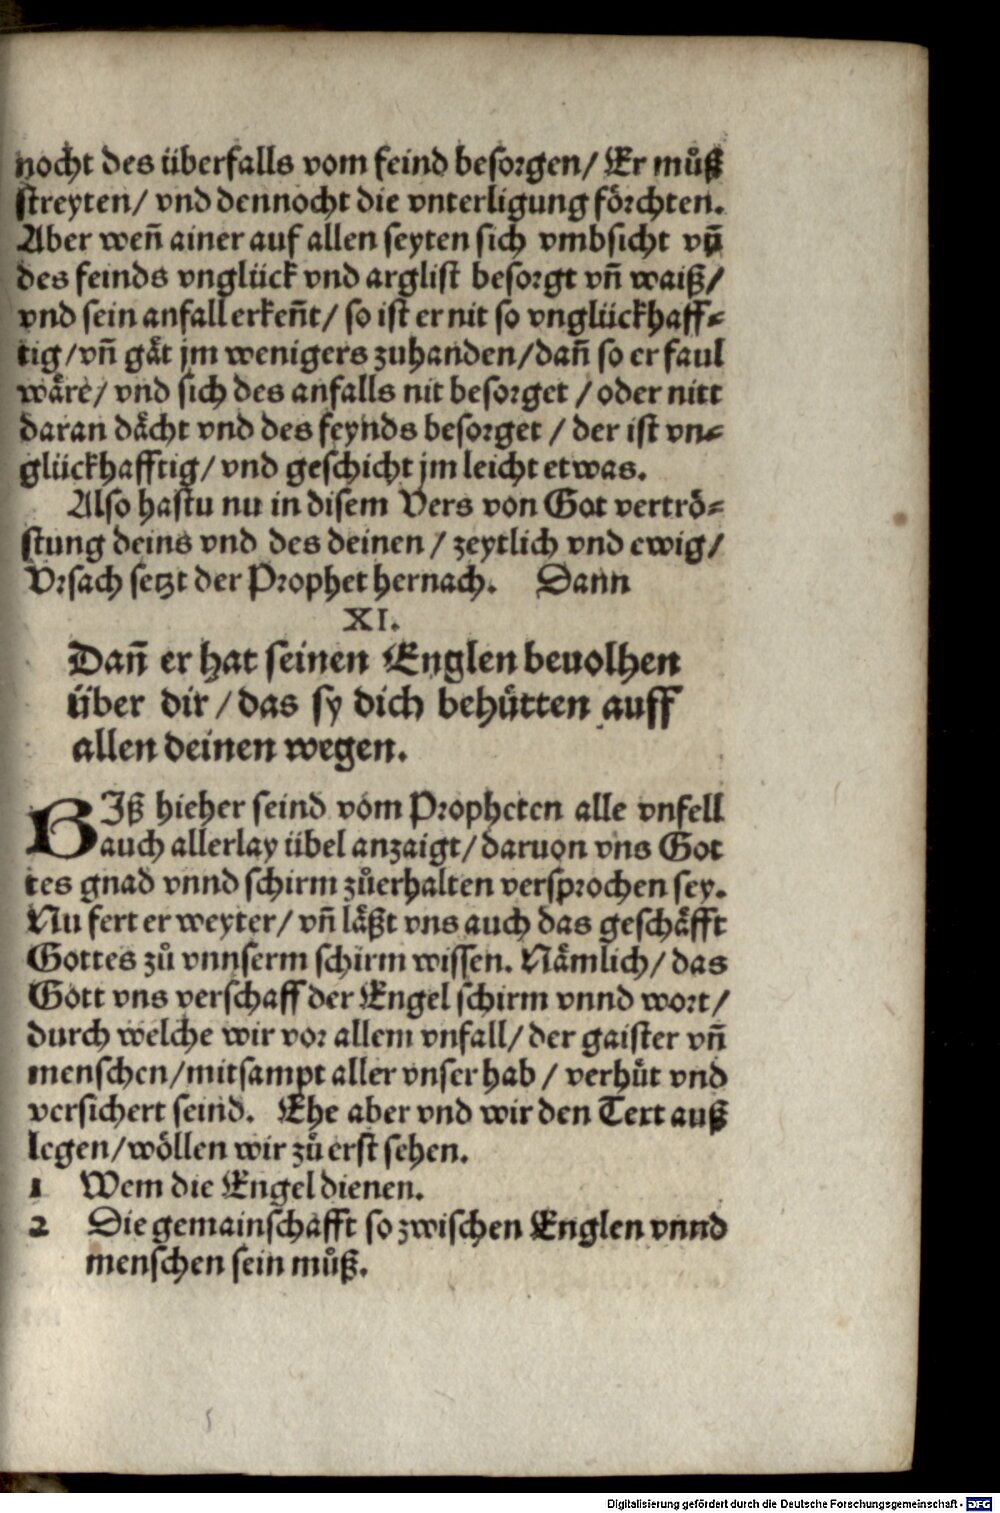 nocht des überfalls vom feind besorgen/ Er můß
streyten/ vnd dennocht die vnterligung foͤrchten.
Aber weñ ainer auf allen seyten sich vmbsicht vñ
des feinds vnglück vnd arglist besorgt vñ waiß/
vnd sein anfall erkeñt/ so ist er nit so vnglückhaff⸗
tig/vñ gaͤt jm wenigers zuhanden/dañ so er faul
waͤre/ vnd sich des anfalls nit besorget / oder nitt
daran daͤcht vnd des feynds besorget / der ist vn⸗
glückhafftig/ vnd geschicht jm leicht etwas.
Also hastu nu in disem Vers von Got vertroͤ⸗
stung deins vnd des deinen / zeytlich vnd ewig/
Vrsach setzt der Prophet hernach. Dann
XI.
Dañ er hat seinen Englen beuolhen
über dir / das sy dich behuͤtten auff
allen deinen wegen.
BIß hieher seind vom Propheten alle vnfell
auch allerlay übel anzaigt/ daruon vns Got
tes gnad vnnd schirm zůerhalten versprochen sey.
Nu fert er weyter/ vñ laͤßt vns auch das geschaͤfft
Gottes zů vnnserm schirm wissen. Naͤmlich/ das
Gott vns verschaff der Engel schirm vnnd wort/
durch welche wir vor allem vnfall/ der gaister vñ
menschen/mitsampt aller vnser hab / verhuͤt vnd
versichert seind. Ehe aber vnd wir den Text auß
legen/woͤllen wir zů erst sehen.
1 Wem die Engel dienen.
2 Die gemainschafft so zwischen Englen vnnd
menschen sein můß.
Digitalisierung gefördert durch die Deutsche Forschungsgemeinschaft - DFG